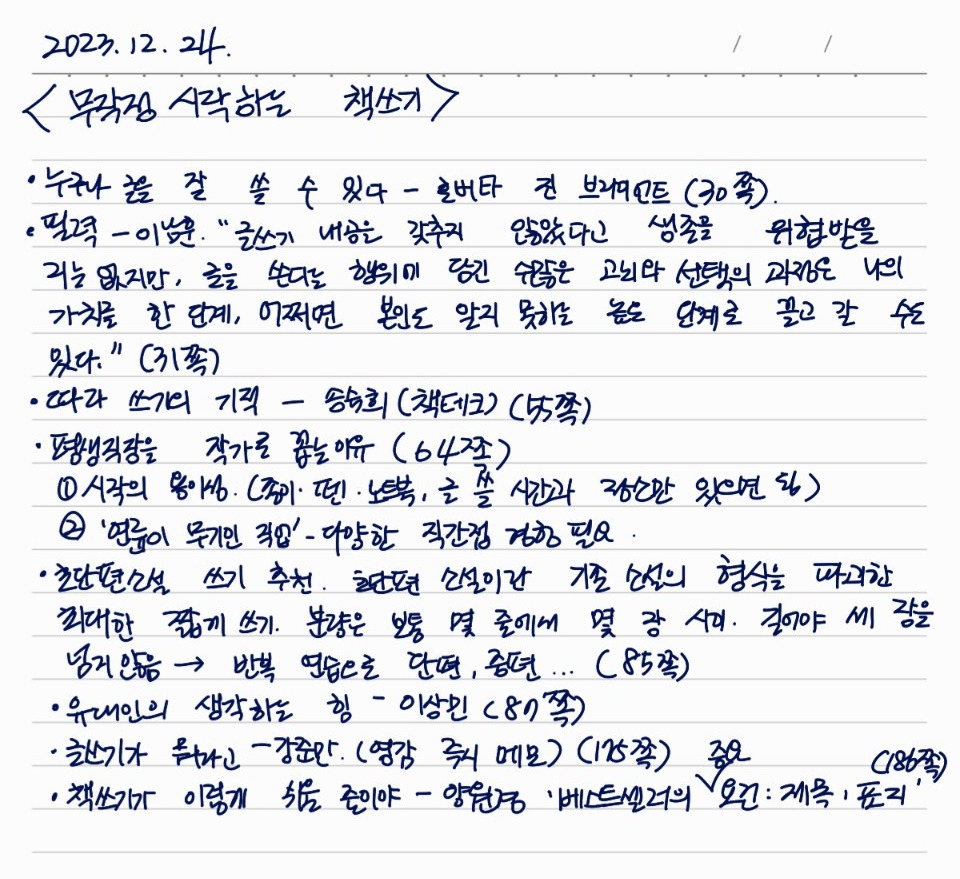 2023.12.24.
<무작정 시작하는 책쓰기>
• 누구나 글을 잘 쓸 수 있다 - 로버타 진 브라이언트 (30쪽).
• 필력 - 이남훈. "글쓰기 내공을 갖추지 않았다고 생존을 위협받을
리는 없지만, 글을 쓴다는 행위에 담긴 수많은 고뇌와 선택의 과정은 나의
가치를 한 단계, 어쩌면 본인도 알지 못하는 높은 단계로 끌고 갈 수도
있다." (31쪽)
• 따라 쓰기의 기적 - 송숙희 (책테크) (55쪽)
• 평생직장을 작가로 꼽는 이유 (64쪽)
① 시작의 용이성. (종이·펜·노트북, 글 쓸 시간과 장소만 있으면 됨)
② '연륜이 무기인 직업' - 다양한 직간접 경험 필요.
• 초단편소설 쓰기 추천. 초단편 소설이란 기존 소설의 형식을 파괴한
최대한 짧게 쓰기. 분량은 보통 몇 줄에서 몇 장 사이. 길어야 세 장을
넘기 않음 → 반복 연습으로 단편, 중편... (85쪽)
• 유대인의 생각하는 힘 - 이상민 (87쪽)
• 글쓰기가 뭐라고 - 강준만. (영감 즉시 메모) (125쪽) 중요 (186쪽)
• 책쓰기가 이렇게 쉬울 줄이야 - 양원근 '베스트셀러의 √요건: 제목, 표지'